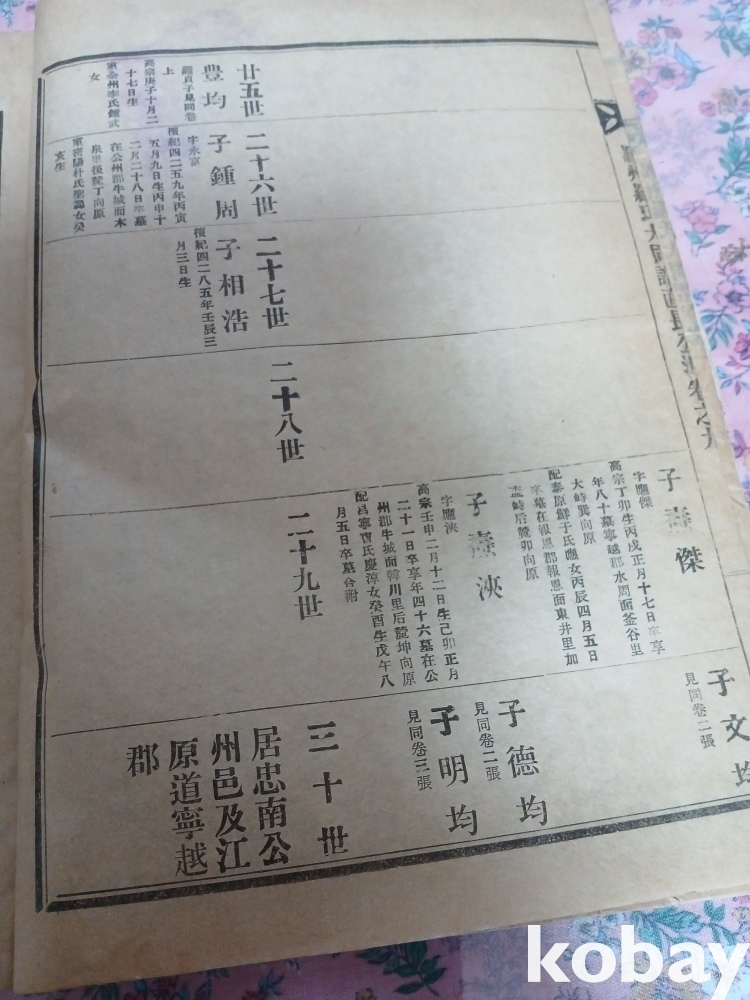 州羅氏大同譜直長公派卷之九
子 傑
字應傑
高宗丁卯生丙戌正月十七日卒享
年八十墓寧越郡水周面釜谷里
大峙巽向原
配泰原鮮于氏應女丙辰四月五日
卒墓在報恩郡報恩面東井里加
峙后麓卯向原
子文均
見同卷二張
子 浹
字應浹
高宗壬申二月十二日生己卯正月
二十一日卒享年四十六墓在公
州郡牛城面韓川里后麓坤向原
配昌寧曺氏慶淳女癸酉生戊午八
月五日卒墓合祔
子德均
見同卷二張
子明均
見同卷三張
廿五世
二十六世
二十七世
二十八世
二十九世
三十世
豊均
貞子見同卷
上
高宗庚子十月二
十七日生
室全州李氏鍾武
女
子鍾周
字永富
檀紀四二五九年丙寅
五月九日生丙申十
二月二十八日卒墓
在公州郡牛城面木
泉里後麓丁向原
室密陽朴氏聖錦女癸
亥生
子相浩
檀紀四二八五年壬辰三
月三日生
居忠南公
州邑及江
原道寧越
郡
kobay